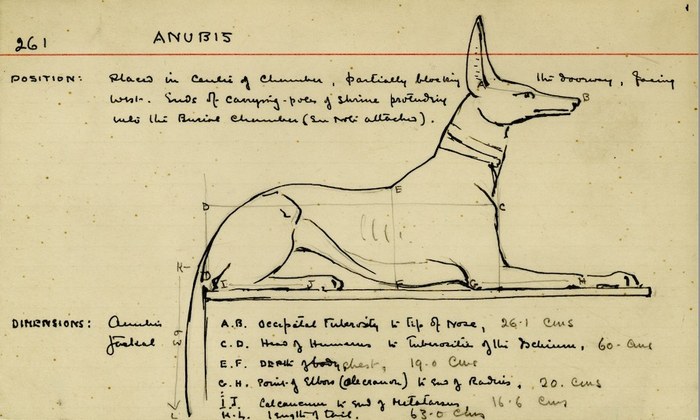 261
ANUBIS
POSITION: Placed in Centre of Chamber, partially blocking the doorway, facing
West. Ends of carrying-poles of shrine protruding
into the Burial Chamber (See Note attached).
A
B
D
E
C
K
D
I
J
F
G
H
63
L
DIMENSIONS: Anubis A.B. Occipital Tuberosity to tip of Nose, 26.1 cms
Jackal C.D. Head of Humerus to Tuberosities of the Ischium, 60. cms
E.F. DEPTH of body chest, 19.0 cms
G.H. Point of Elbow (Olecranon) to End of Radius, 20. cms
I.J. Calcaneum to End of Metatarsus 16.6 cms
K.L. length of tail. 63.0 cms